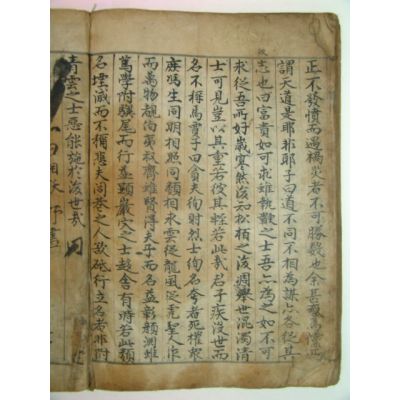 正不發憤而遇禍災者不可勝數也余甚惑焉儻所
謂天道是耶非耶子曰道不同不相為謀亦各從其
志故也曰富貴如可求雖執鞭之士吾亦為之如不可
求從吾所好歲寒然後知松柏之後凋舉世混濁清
士可見豈以其重若彼其輕若此哉君子疾沒世而
名不稱焉賈子曰貪夫徇財烈士徇名夸者死權衆
庶馮生同明相照同類相求雲從龍風從虎聖人作
而萬物覩伯夷叔齊雖賢得夫子而名益彰顔淵雖
篤學附驥尾而行益顯巖穴之士趍舍有時若此類
名堙滅而不稱悲夫閭巷之人欲砥行立名者非附
青雲之士惡能施於後世哉